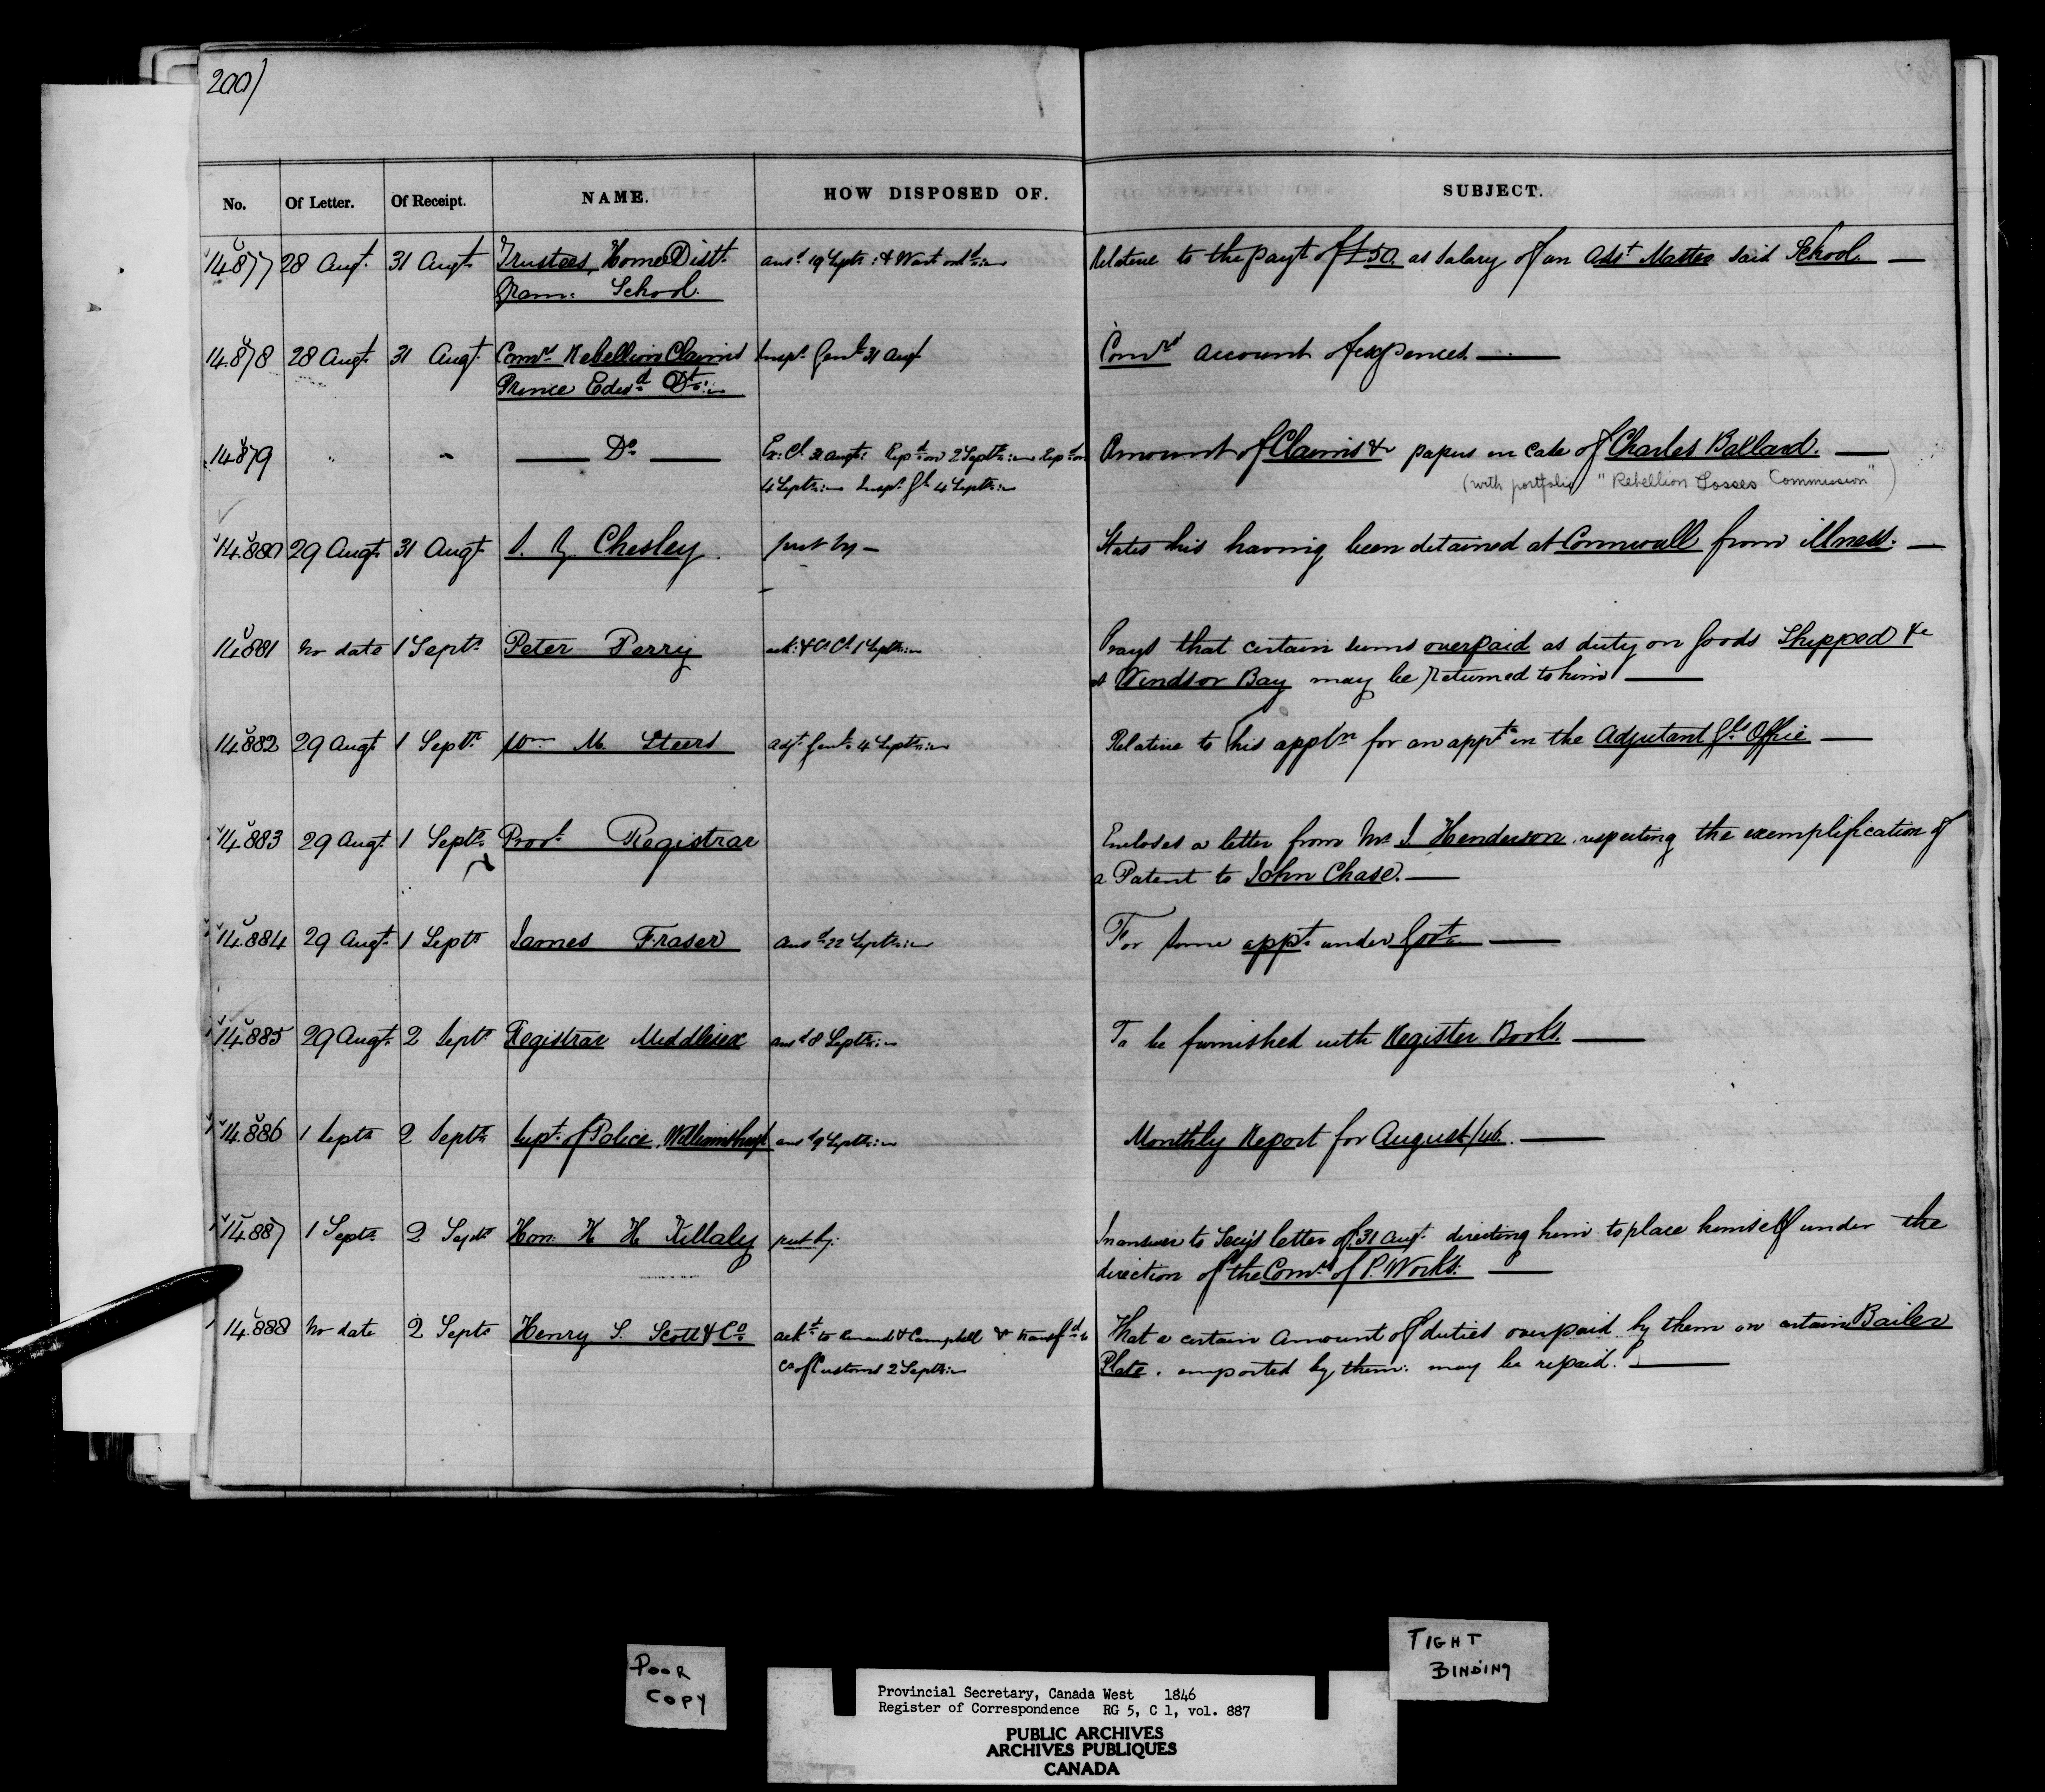 200)
No. Of Letter. Of Receipt. NAME. HOW DISPOSED OF. SUBJECT.
14.877 28 Augt. 31 Augt. Trustees, Home Distt. ansd. 19 Septr. & Wart ordd. Relative to the payt of £50. as Salary of an Asst Master said School. —
Gram: School.
14.878 28 Augt. 31 Augt. Comrs. Rebellion Claims Inspr. Genl. 31 Augt Comrs account of expences. —
Prince Edwd. Dt.
14.879 " " — Do — Ex: Cl. 31 Augt: Repd. on 2 Septr. Repd. on Amount of Claims & papers in case of Charles Ballard. —
4 Septr. Inspr. Gl. 4 Septr. (with portfolio "Rebellion Losses Commission")
14.880 29 Augt. 31 Augt. Chesley. put by — States his having been detained at Cornwall from illness. —
14.881 No date 1 Septr. Peter Perry 1 Septr. Prays that certain sums overpaid as duty on Goods Shipped &c
at Windsor Bay may be returned to him —
14.882 29 Augt. 1 Septr. Wm M. Steers Adjt. Genl. 4 Septr. Relative to his appln for an appt. in the Adjutant Gl's Office —
14.883 29 Augt. 1 Septr. Provl. Registrar Encloses a letter from Mr. J. Henderson respecting the exemplification of
a Patent to John Chase. —
14.884 29 Augt. 1 Septr James Fraser Ansd. 22 Septr. For some appt. under Govt. —
14.885 29 Augt. 2 Septr Registrar Middlesex ansd 8 Septr. To be furnished with Register Books. —
14.886 1 Septr 2 Septr. Supt. of Police, Williamsburgh ansd 9 Septr. Monthly Report for August/46. —
14.887 1 Septr. 2 Septr Hon. H H Killaly put by. In answer to Secy's letter of 31 Augt. directing him to place himself under the
direction of the Comrs. of P. Works. —
14.888 No date 2 Septr Henry S. Scott & Co. ackd. to & Campbell & transfd. to That a certain amount of duties overpaid by them on certain Bailer
Cr of Customs 2 Septr. Plate. imported by them. may be repaid. —
POOR
COPY
TIGHT
BINDING
Provincial Secretary, Canada West 1846
Register of Correspondence RG 5, C 1, vol. 887
PUBLIC ARCHIVES
ARCHIVES PUBLIQUES
CANADA